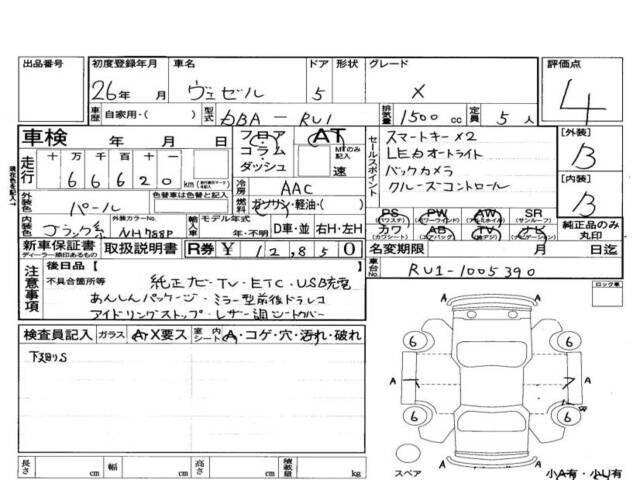 出品番号 初度登録年月 車名 ドア 形状 グレード 評価点
26年 月 ヴェゼル 5 X 4
車歴 自家用・( ) 型式 DBA - RU1 排気量 1500 cc 定員 5 人
車検 年 月 日 フロア コラム ダッシュ AT MTのみ記入 速
セールスポイント スマートキー×2
LEDオートライト
バックカメラ
クルーズコントロール
[外装] B
[内装] B
走行 十万千百十 66620 km
冷房 AAC
外装色 パール 燃料 ガソリン・軽油・( )
内装色 ブラック系 外装カラーNo. NH788P 輸入車 モデル年式 年・不明 D車・並 右H・左H
PS (パワステ) PW (パワーウィンド) AW (アルミホイル) SR (サンルーフ)
カワ (カワシート) AB (エアバッグ) TV (地デジ) ナビ (ナビゲーション) 純正品のみ丸印
新車保証書 ディーラー捺印あるもの 取扱説明書 R券 ¥ 12,850 名変期限 月 日迄
注意事項 後日品 [ ] 車台No. RU1-1005390
不具合箇所等 純正ナビ・TV・ETC・USB充電
あんしんパッケージ・ミラー型前後ドラレコ
アイドリングストップ・レザー調シートカバー
ロック車
検査員記入 ガラス A・X要ス 室内シート A・コゲ・穴・汚れ・破れ
下廻りS
6 6
A A A A
6 6
長さ cm 幅 cm 高さ cm 積載量 kg
スペア 小A有・小U有